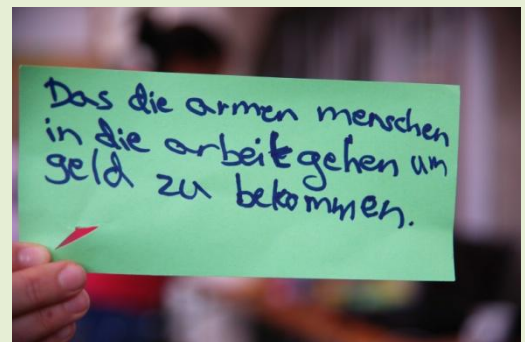 Das die armen menschen
in die arbeit gehen um
geld zu bekommen.